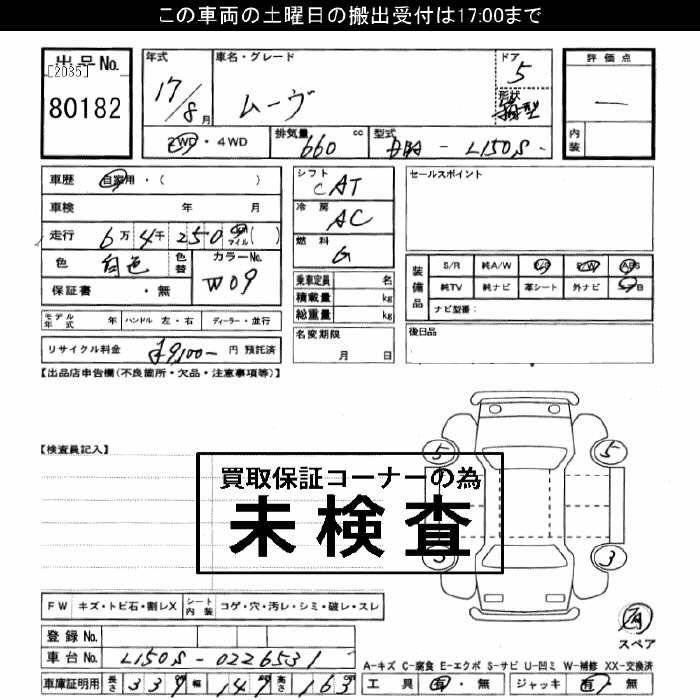 この車両の土曜日の搬出受付は17:00まで
出品No.
[2035]
80182
年式
17/8月
車名・グレード
ムーヴ
ドア
5
形状
評価点
—
内装
2WD・4WD
排気量
660 cc
型式
DBA - L150S -
車歴 自家用・( )
車検 年 月
走行 6万4千250 マイル( )
色 白色
色替
カラーNo.
W09
保証書 ・無
モデル年式 年
ハンドル 左・右
ディーラー・並行
リサイクル料金 ¥9,100- 円 預託済
シフト
CAT
冷房
AC
燃料
G
乗車定員 名
積載量 kg
総重量 kg
名変期限
月 日
セールスポイント
装備品
S/R 純A/W P/S P/W ABS
純TV 純ナビ 革シート 外ナビ
ナビ型番:
後日品
【出品店申告欄(不良箇所・欠品・注意事項等)】
【検査員記入】
5
5
3
3
買取保証コーナーの為
未検査
FW キズ・トビ石・割レX
シート内装 コゲ・穴・汚レ・シミ・破レ・スレ
有
スペア
登録No.
車台No. L150S-0226531
車庫証明用 長さ 339 幅 147 高さ 163
A-キズ C-腐食 E-エクボ S-サビ U-凹ミ W-補修 XX-交換済
工具 有・無 ジャッキ 有・無